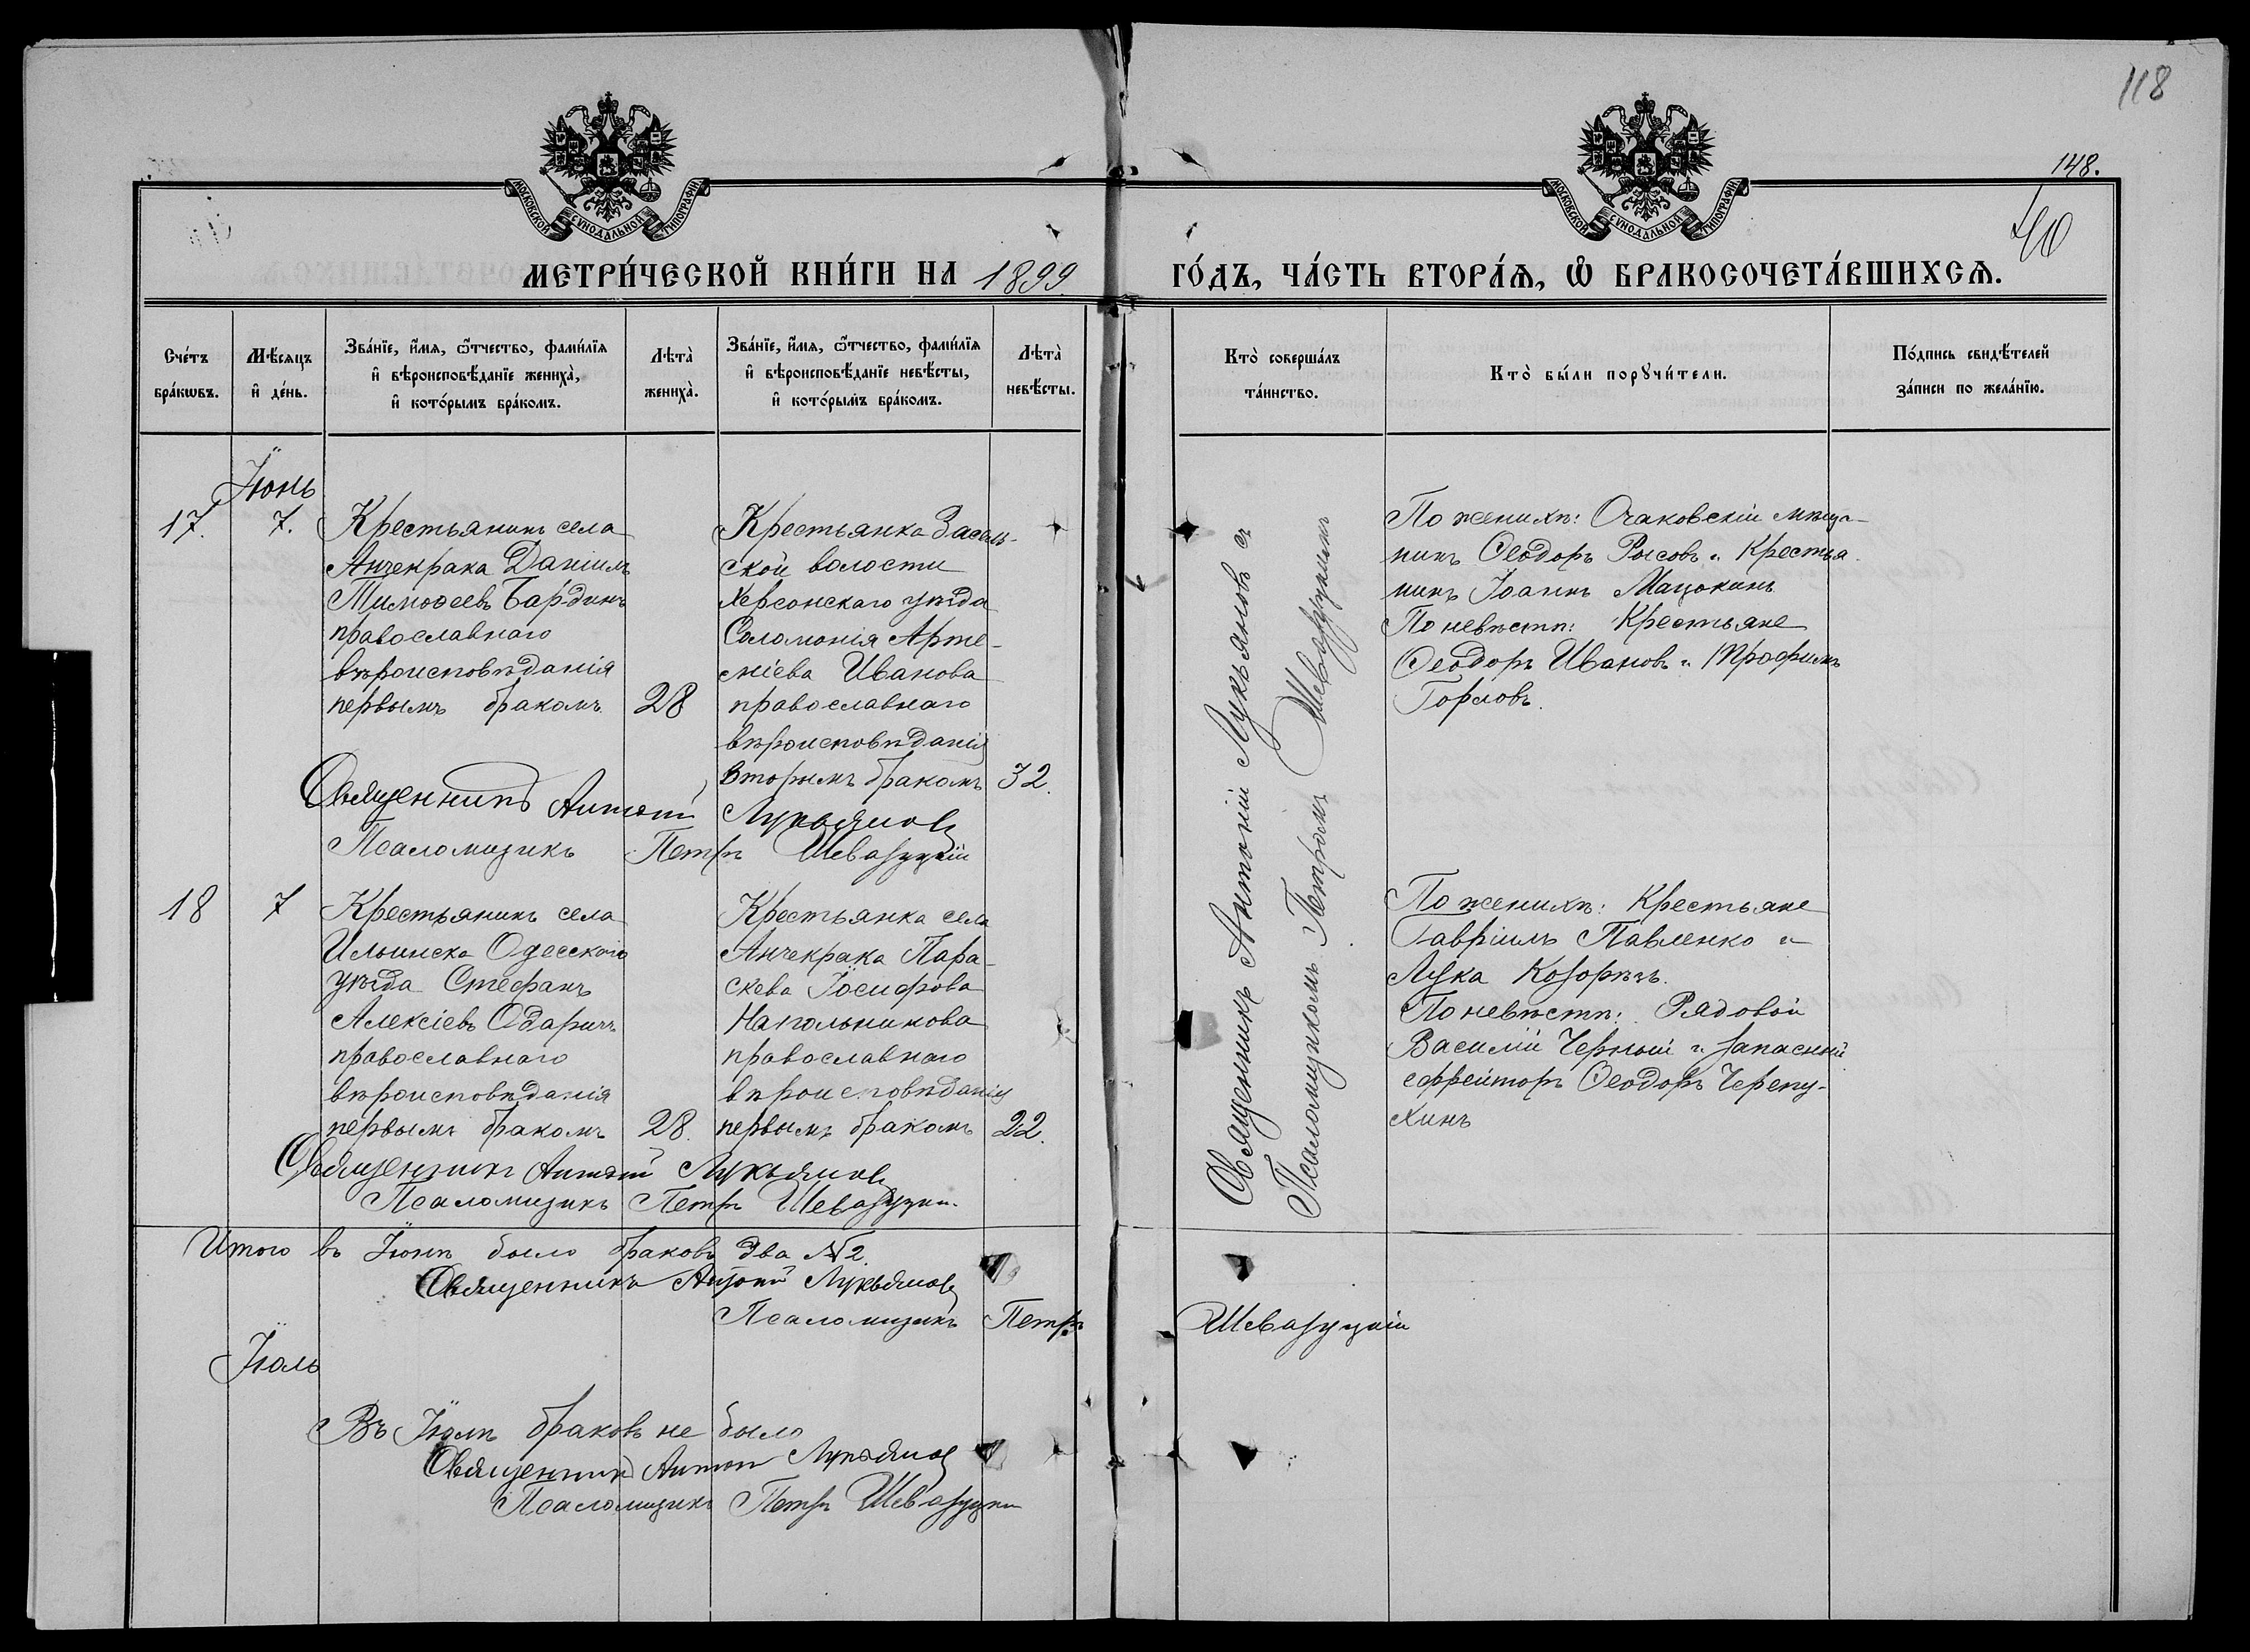 118
148.
40
МОСКОВСКОЙ СУНОДАЛЬНОЙ ТИПОГРАФІИ
МОСКОВСКОЙ СУНОДАЛЬНОЙ ТИПОГРАФІИ
МЕТРИ́ЧЕСКОЙ КНИ́ГИ НА 1899 ГО́ДЪ, ЧА́СТЬ ВТОРА́Ѧ, Ѽ БРАКОСОЧЕТА́ВШИХСѦ.
Сче́тъ
бра́кѡвъ.
Мѣ́сѧцъ
и҆ де́нь.
Зва́нїе, и҆́мѧ, ѻ҆́тчество, фами́лїѧ
и҆ вѣроисповѣ́данїе жениха̀,
и҆ кото́рымъ бра́комъ.
Лѣта̀
жениха̀.
Зва́нїе, и҆́мѧ, ѻ҆́тчество, фами́лїѧ
и҆ вѣроисповѣ́данїе невѣ́сты,
и҆ кото́рымъ бра́комъ.
Лѣта̀
невѣ́сты.
Кто̀ соверша́лъ
та́инство.
Кто̀ бы́ли порꙋчи́тели.
По́дпись свидѣ́телей
за́писи по жела́нїю.
Іюнь
17.
7.
Крестьянинъ села
Анчекрака Даніилъ
Тимоѳеевъ Бардинъ
православнаго
вѣроисповѣданія
первымъ бракомъ
28
Крестьянка Засель-
ской волости
Херсонскаго уѣзда
Соломонія Арте-
міева Иванова
православнаго
вѣроисповѣданія
вторымъ бракомъ
32.
Священникъ Антоній Лукьяновъ
Псаломщикъ Петръ Шевазуцкій
По женихѣ: Очаковскій мѣща-
нинъ Ѳеодоръ Рысовъ и Крестья-
нинъ Іоаннъ Мацокинъ
По невѣстѣ: Крестьяне
Ѳеодоръ Ивановъ и Трофимъ
Горловъ.
18
7
Крестьянинъ села
Ильинска Одесскаго
уѣзда Стефанъ
Алексіевъ Одаричъ
православнаго
вѣроисповѣданія
первымъ бракомъ
28.
Крестьянка села
Анчекрака Пара-
скева Іосифова
Напольникова
православнаго
вѣроисповѣданія
первымъ бракомъ
22.
Священникъ Антоній Лукьяновъ
Псаломщикъ Петръ Шевазуцкій
Священникъ Антоній Лукьяновъ съ
Псаломщикомъ Петромъ Шевазуцкимъ
По женихѣ: Крестьяне
Гавріилъ Павленко и
Лука Козорѣзъ.
По невѣстѣ: Рядовой
Василій Черный и запасный
ефрейторъ Ѳеодоръ Черепу-
хинъ
Итого въ Іюнѣ было браковъ два №2.
Священникъ Антоній Лукьяновъ
Псаломщикъ Петръ Шевазуцкій
Іюль
Въ Іюлѣ браковъ не было
Священникъ Антоній Лукьяновъ
Псаломщикъ Петръ Шевазуцкій